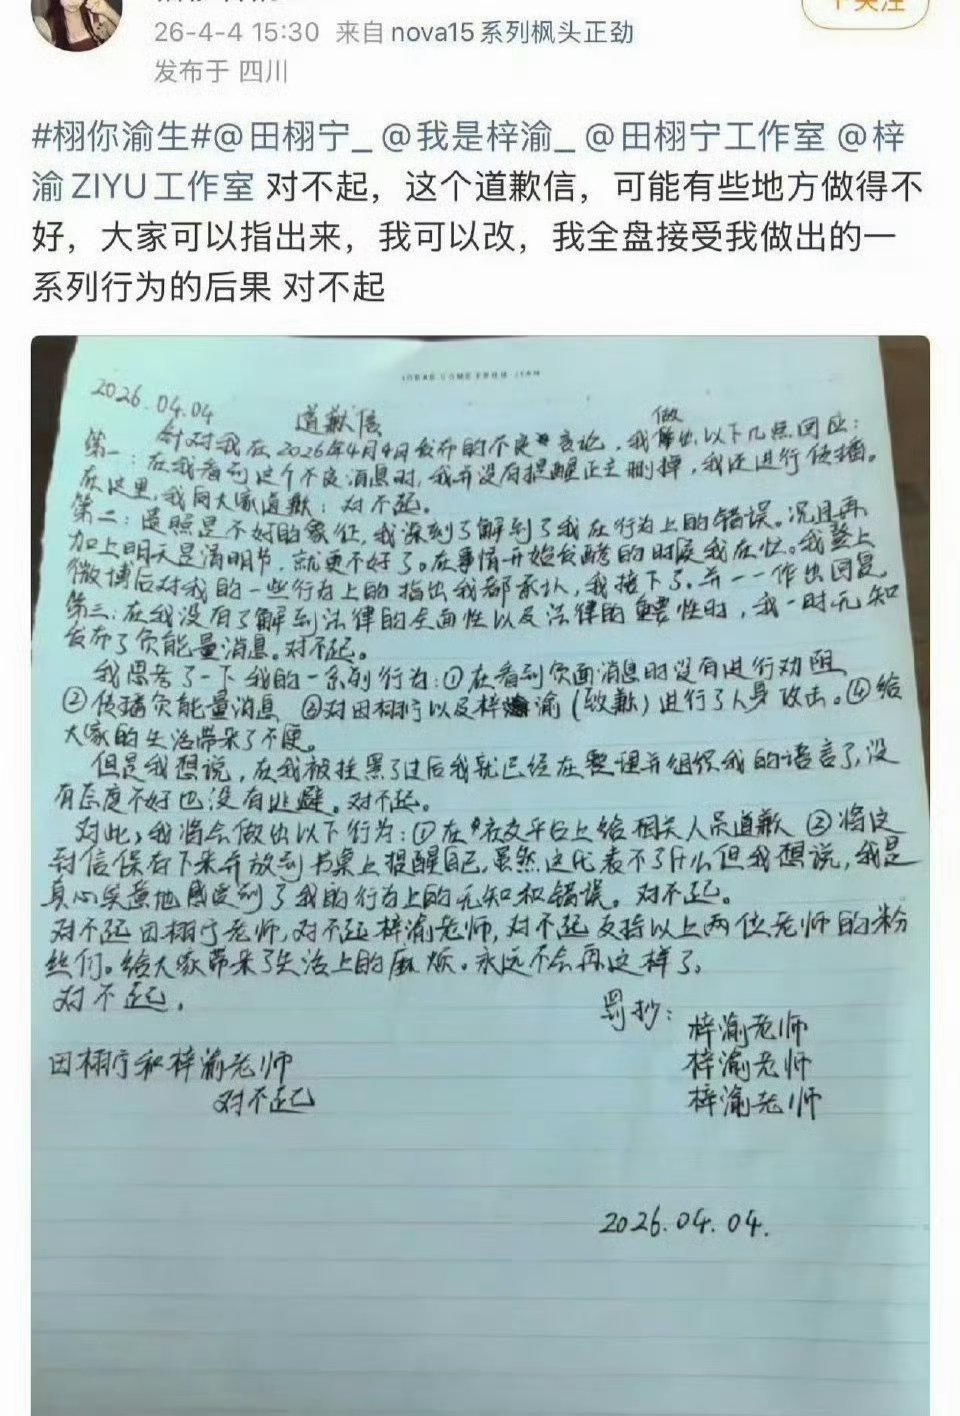 26-4-4 15:30 来自 nova15系列枫头正劲
发布于 四川
#栩你渝生#@田栩宁_ @我是梓渝_ @田栩宁工作室 @梓
渝ZIYU工作室 对不起，这个道歉信，可能有些地方做得不
好，大家可以指出来，我可以改，我全盘接受我做出的一
系列行为的后果 对不起
2026.04.04
道歉信
做
针对我在2026年4月4日发布的不良言论，我出以下几点回应：
第一：在我看到这个不良消息时，我并没有提醒正主删掉，我还进行传播。
在这里，我向大家道歉：对不起。
第二：遗照是不好的象征，我深刻了解到了我在行为上的错误。况且再
加上明天是清明节，就更不好了。在事情开始发酵的时候我在忙。我登上
微博后对我的一些行为上的指出我都承认，我接下了。并一一作出回复。
第三：在我没有了解到法律的全面性以及法律的重要性时，我一时无知
发布了负能量消息。对不起。
我思考了一下我的一系列行为：①在看到负面消息时没有进行劝阻
②传播负能量消息 ③对田栩宁以及梓渝（致歉）进行了人身攻击。④给
大家的生活带来了不便。
但是我想说，在我被挂黑了过后我就已经在整理并组织我的语言了，没
有态度不好也没有逃避。对不起。
对此，我将会做出以下行为：①在社交平台上给相关人员道歉 ②将这
封信保存下来并放到书桌上提醒自己，虽然这代表不了什么但我想说，我是
真心实意地感受到了我的行为上的无知和错误。对不起。
对不起田栩宁老师，对不起梓渝老师，对不起支持以上两位老师的粉
丝们。给大家带来了生活上的麻烦。永远不会再这样了。
对不起。
罚抄：
梓渝老师
田栩宁和梓渝老师
梓渝老师
对不起
梓渝老师
2026.04.04.